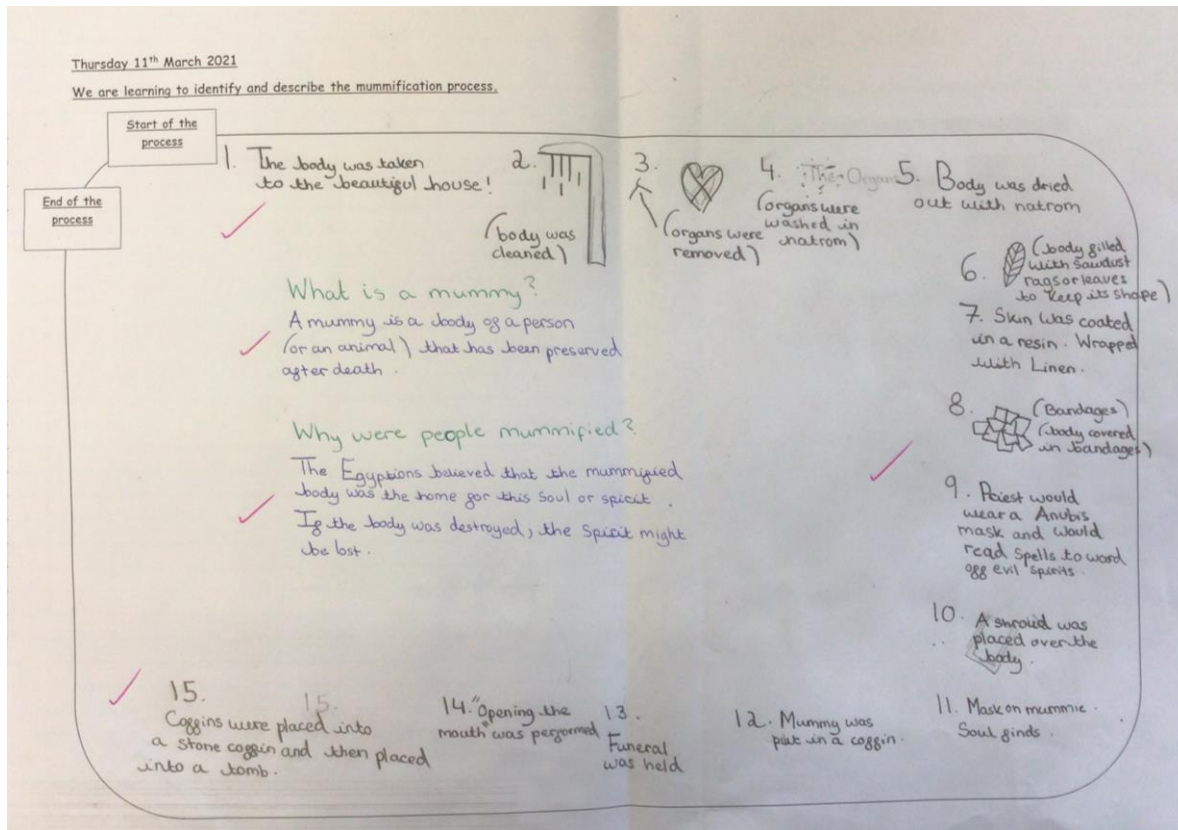 Thursday 11th March 2021
We are learning to identify and describe the mummification process.
Start of the
process
End of the
process
1. The body was taken
to the beautiful house!
2.
(body was
cleaned)
3.
(organs were
removed)
4. The Organ
(organs were
washed in
natrom)
5. Body was dried
out with natrom
6. (body filled
with sawdust
rags or leaves
to keep its shape)
7. Skin was coated
in a resin. Wrapped
with Linen.
8. (Bandages)
(body covered
in bandages)
9. Priest would
wear a Anubis
mask and would
read spells to word
off evil spirits.
10. A shroud was
placed over the
body.
11. Mask on mummie.
Soul finds.
12. Mummy was
put in a coffin.
13.
Funeral
was held
14. "Opening the
mouth" was performed
15.
15.
Coffins were placed into
a stone coffin and then placed
into a tomb.
What is a mummy?
A mummy is a body of a person
(or an animal) that has been preserved
after death.
Why were people mummified?
The Egyptions believed that the mummified
body was the home for this Soul or spirit.
If the body was destroyed, the Spirit might
be lost.